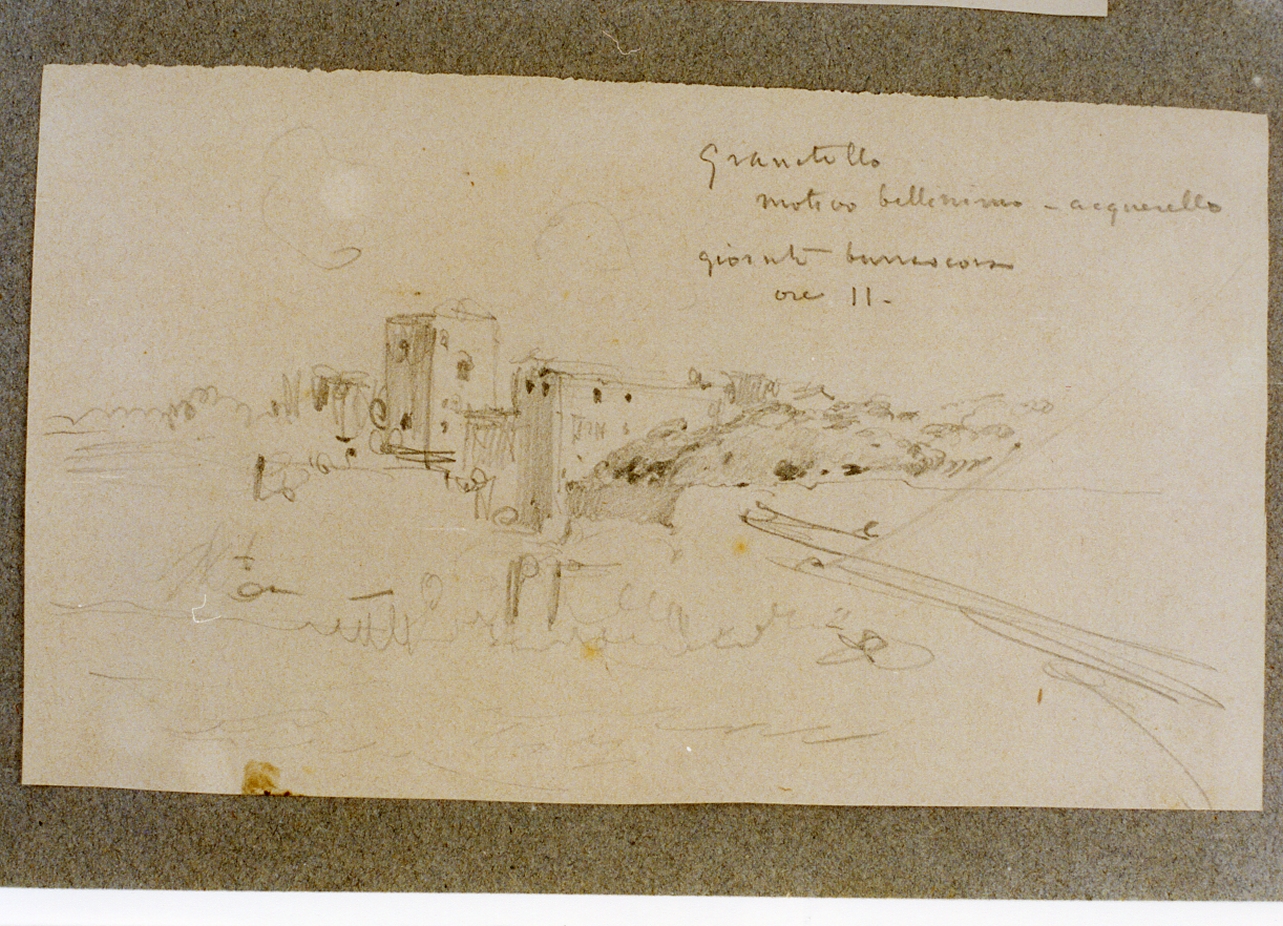 Granatello
motivo bellissimo - acquerello
giornata burrascosa
ore 11-